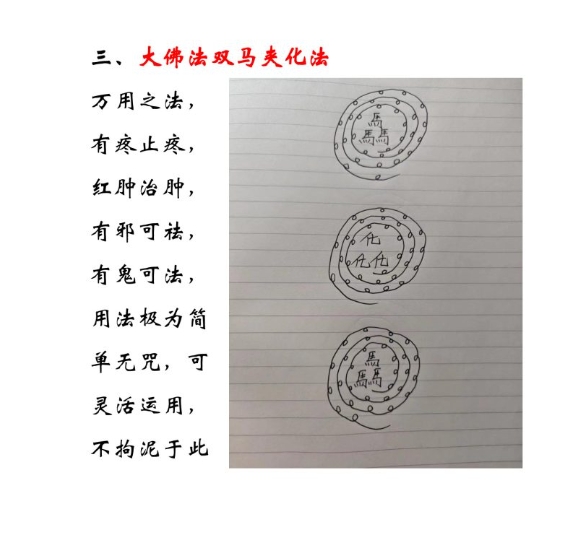 三、大佛法双马夹化法
万用之法，
有疼止疼，
红肿治肿，
有邪可祛，
有鬼可法，
用法极为简
单无咒，可
灵活运用，
不拘泥于此
馬
馬馬
化
化化
馬
馬馬